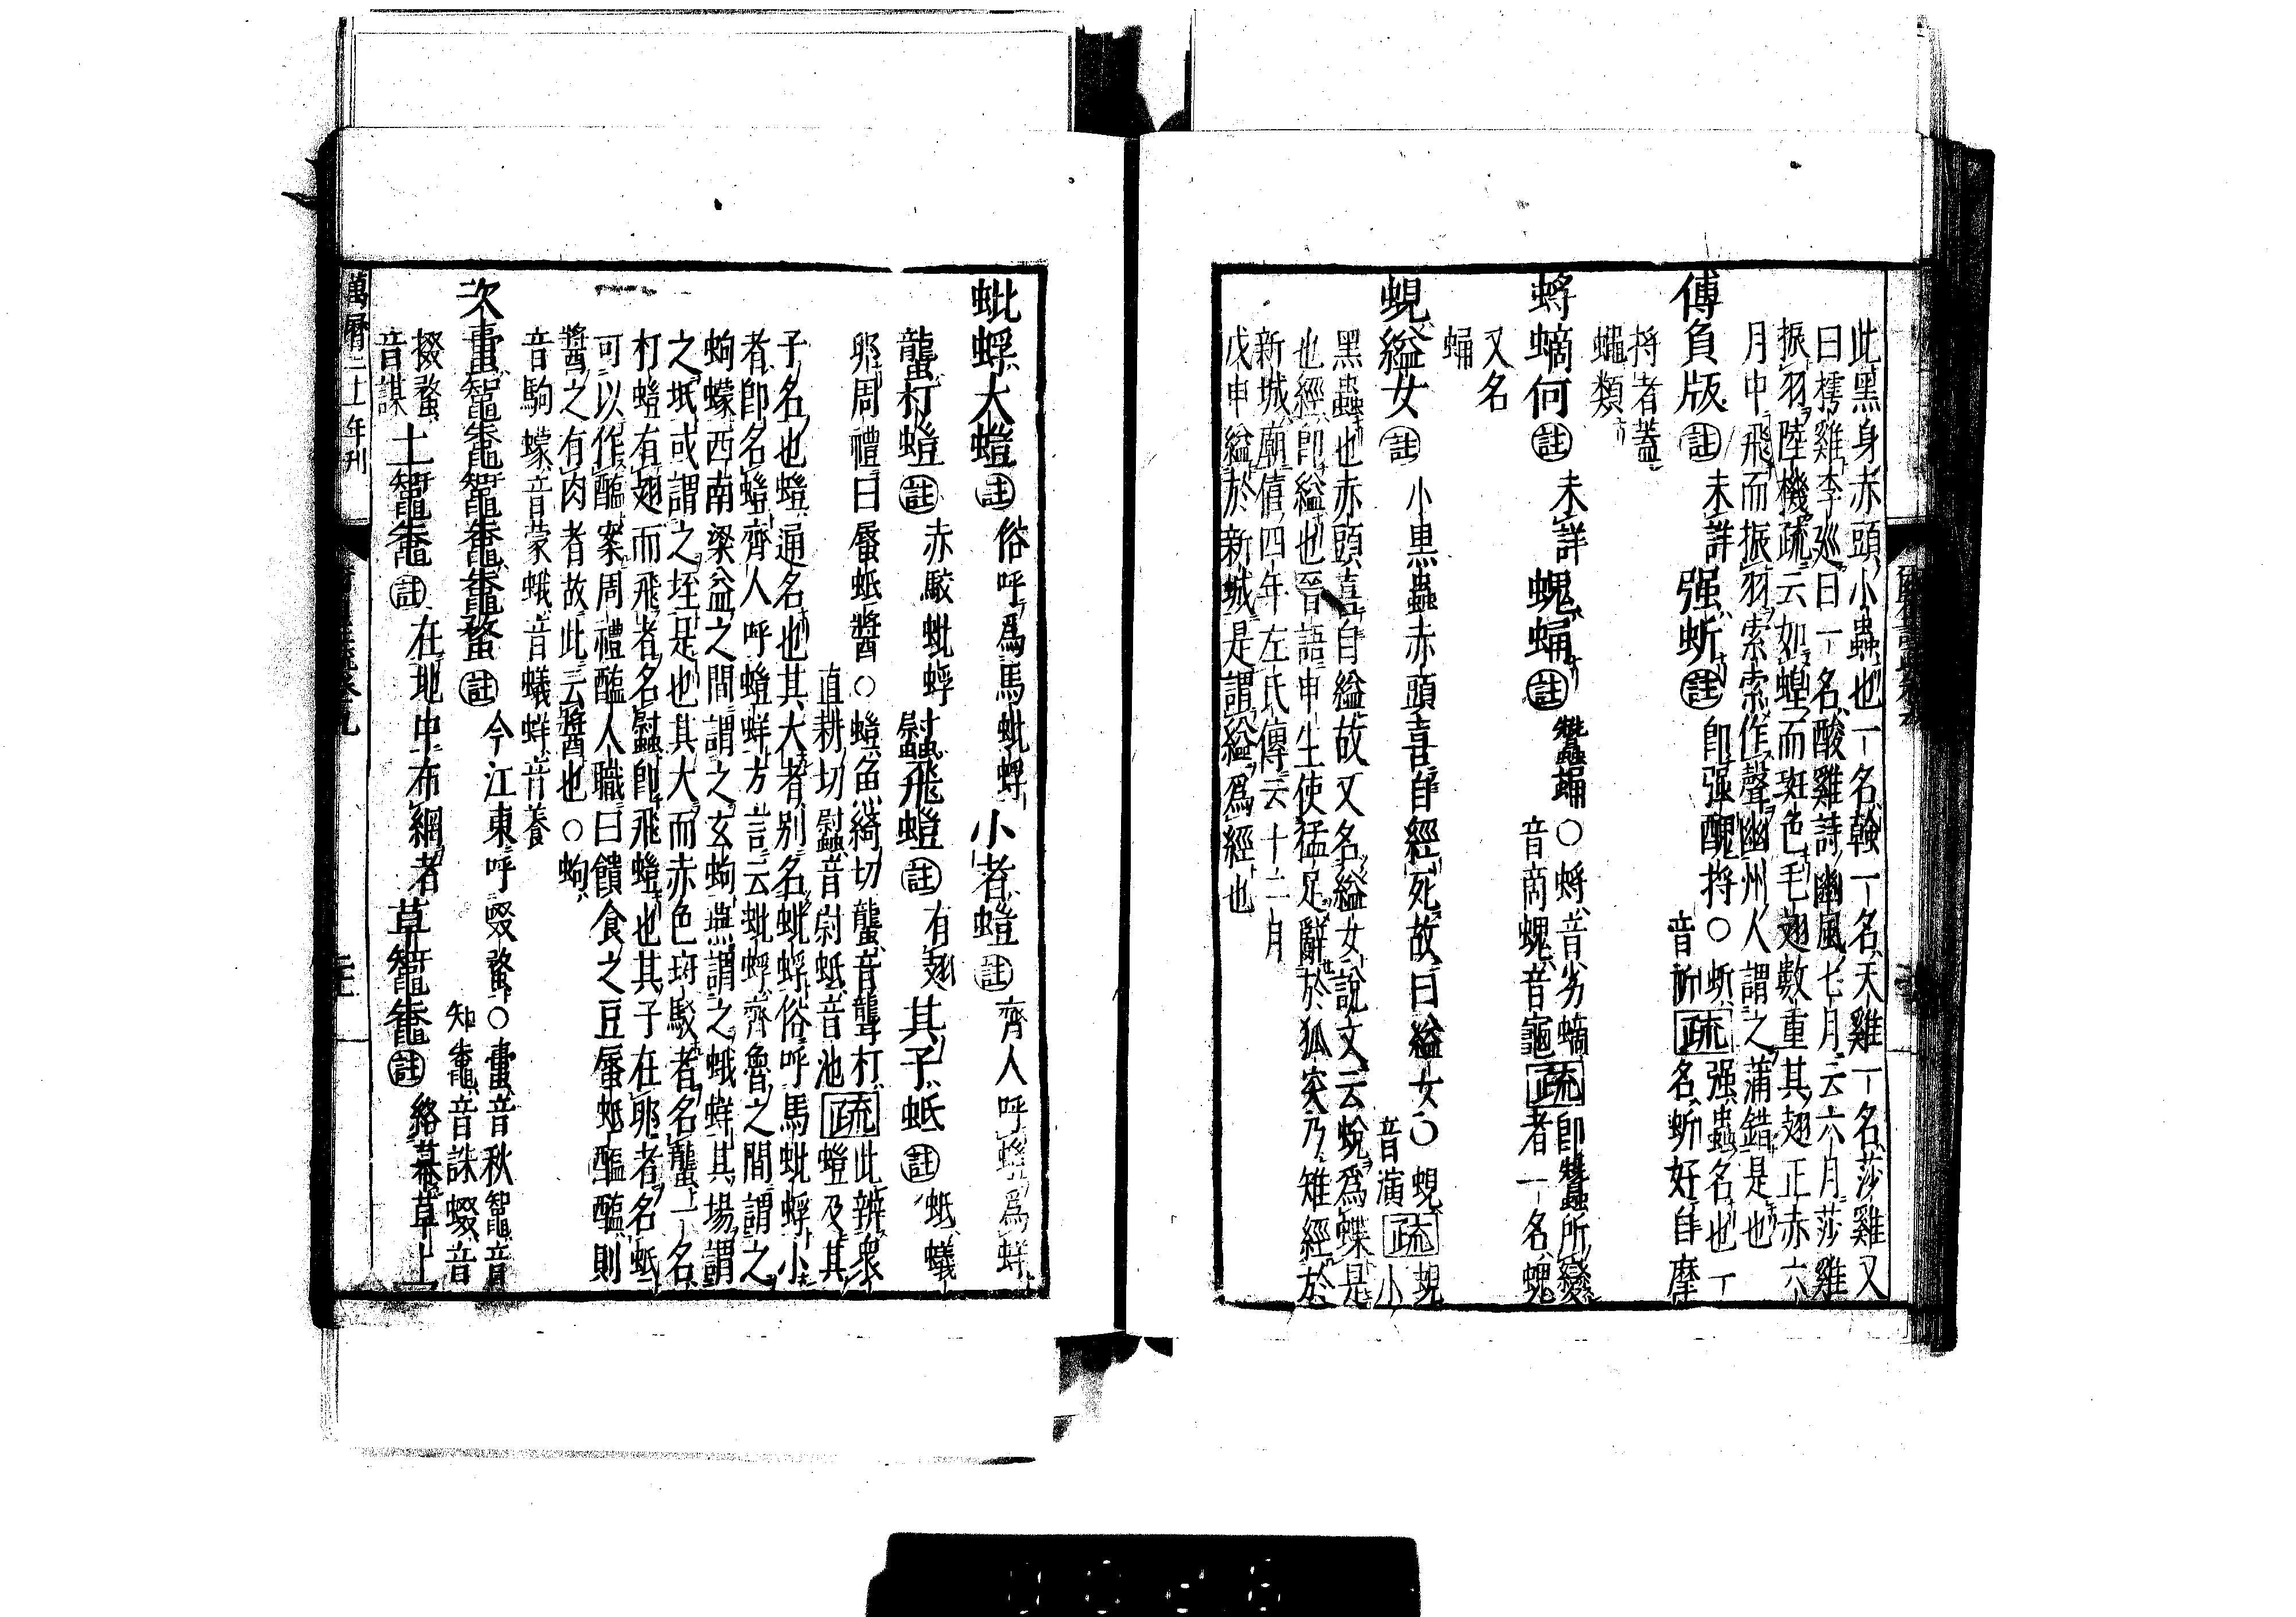 此黑身赤頭小蟲也一名螒一名天雞一名莎雞又
曰樗雞李巡曰一名酸雞詩豳風七月云六月莎雞
振羽陸機疏云如蝗而斑色毛翅數重其翅正赤六
月中飛而振羽索索作聲幽州人謂之蒲錯是也
傅負版註未詳强蚚註即强醜捋○蚚音祈疏强蟲名也一名蚚好自摩
捋者蓋
蠅類
蛶螪何註未詳螝蛹註蠶蛹○蛶音劣螪音商螝音龜疏即蠶所變者一名螝
又名
蛹
蜆縊女註小黑蟲赤頭喜自經死故曰縊女○蜆音演疏蜆小
黑蟲也赤頭喜自縊故又名縊女說文云蛻爲蝶是
也經即縊也晉語申生使猛足辭於狐突乃雉經於
新城廟僖四年左氏傳云十二月
戊申縊於新城是謂縊爲經也
蚍蜉大螘註俗呼爲馬蚍蜉小者螘註齊人呼螘爲蛘
蠪朾螘註赤駮蚍蜉䗽飛螘註有翅其子蚳註蚳蟻
卵周禮曰蜃蚳醬○螘魚綺切蠪音聾朾直耕切䗽音尉蚳音池疏此辨衆螘及其
子名也螘通名也其大者别名蚍蜉俗呼馬蚍蜉小
者即名螘齊人呼螘蛘方言云蚍蜉齊魯之間謂之
蚼蠓西南梁益之間謂之玄蚼燕謂之蛾蛘其場謂
之坻或謂之垤是也其大而赤色斑駁者名蠪一名
朾螘有翅而飛者名䗽即飛螘也其子在卵者名蚳
可以作醢案周禮醢人職曰饋食之豆蜃蚳醢醢則
醬之有肉者故此云醬也○蚼
音駒蠓音蒙蛾音蟻蛘音養
次蟗鼅鼄鼅鼄鼄蝥註今江東呼蝃蝥○蟗音秋鼅音知鼄音誅蝃音
掇蝥
音謀土鼅鼄註在地中布網者草鼅鼄註絡幕草上
萬曆二十一年刊